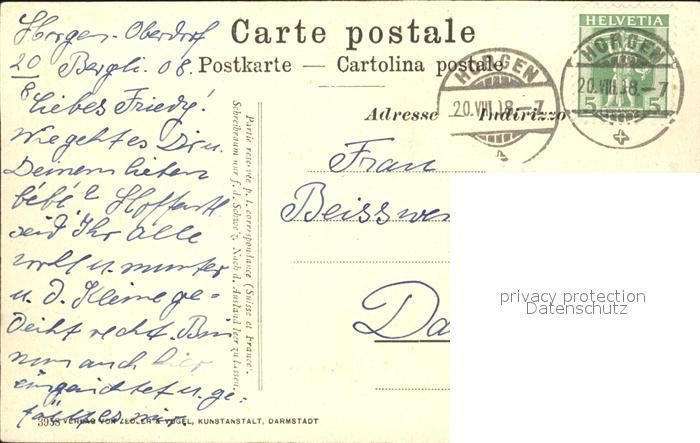 Horgen-Oberdorf
20/8 Bergli. 08.
Liebes Friedy!
Wie geht es Dir u.
Deinem lieben
bébé? Hoffentl.
seid Ihr alle
wohl u. munter
u. d. Kleine ge-
deiht recht. Bin
nun auch hier
eingerichtet u. ge-
fällt es mir.
Carte postale
Postkarte — Cartolina postale
Adresse Indirizzo
HELVETIA
5 5
HORGEN
20.VIII.08-7
HORGEN
20.VIII.08-7
Frau
Beisswe
Da
Partie reservée p. l. correspondance (Suisse et France).
Schreibraum nur f. d. Schweiz. Nach d. Ausland leer zu lassen.
privacy protection
Datenschutz
3958 VERLAG VON ZEDLER & VOGEL, KUNSTANSTALT, DARMSTADT